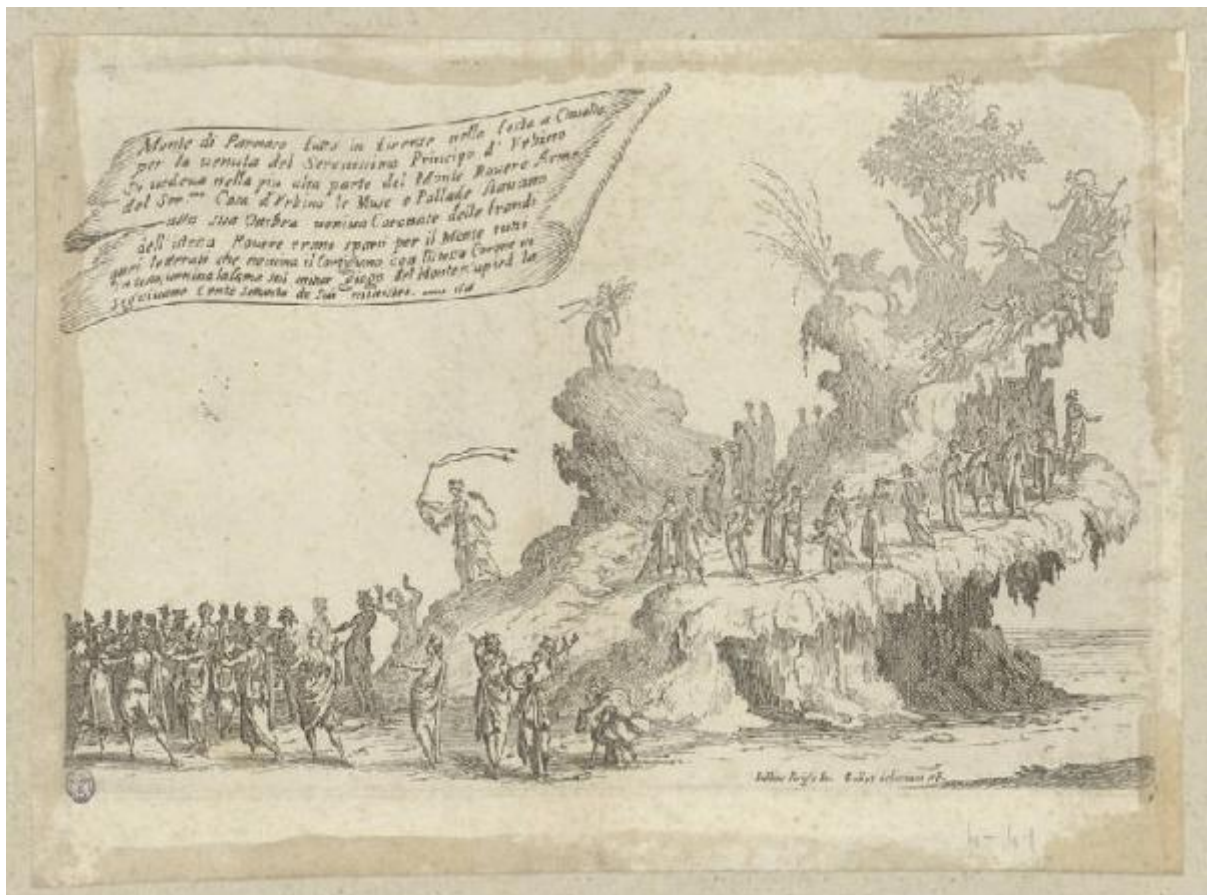 Monte di Parnaso fatto in firenze nella festa a Cavallo
per la venuta del Serenissimo Principe d' Vrbino
Si vedeva nella più alta parte del Monte Rovere Arme
del Ser.mo Casa d'Vrbino le Muse e Pallade stavano
alla sua Ombra Coronate delle frondi
dell' istessa Rovere erano sparsi per il Monte tutti
quei letterati che nomina il Cortigiano con l'istessa Corone in
testa, la fama nel minor Giogo del Monte a piedi la
seguivano Cento settanta de suoi ministri
Iulius Parigij In. Callot delineavit et F.